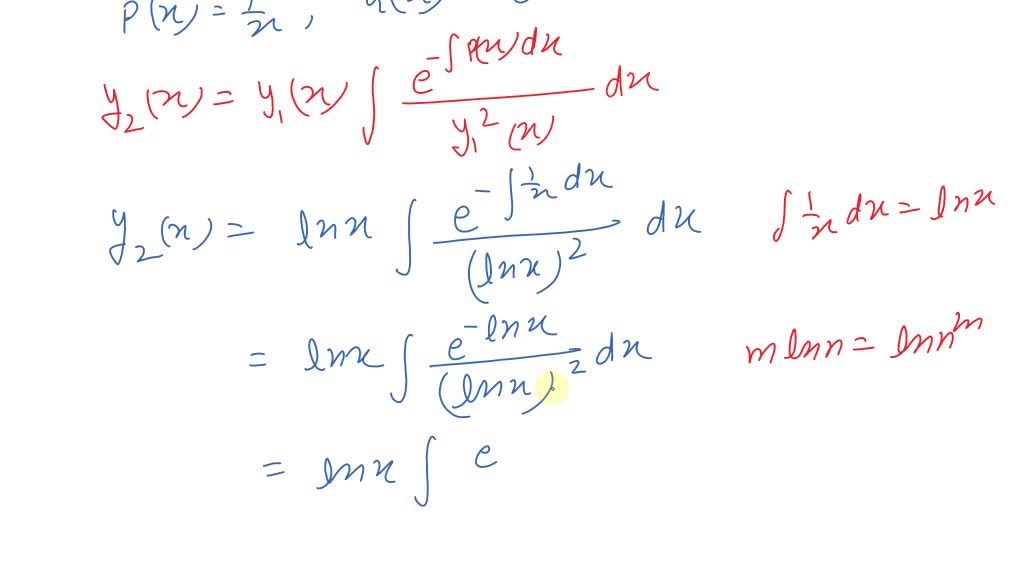 P(x) = 1/x ,
y₂(x) = y₁(x) ∫ e^(-∫P(x)dx) / y₁²(x) dx
y₂(x) = lnx ∫ e^(-∫1/x dx) / (lnx)² dx
∫ 1/x dx = lnx
= lnx ∫ e^(-lnx) / (lnx)² dx
m ln n = ln n^m
= lnx ∫ e